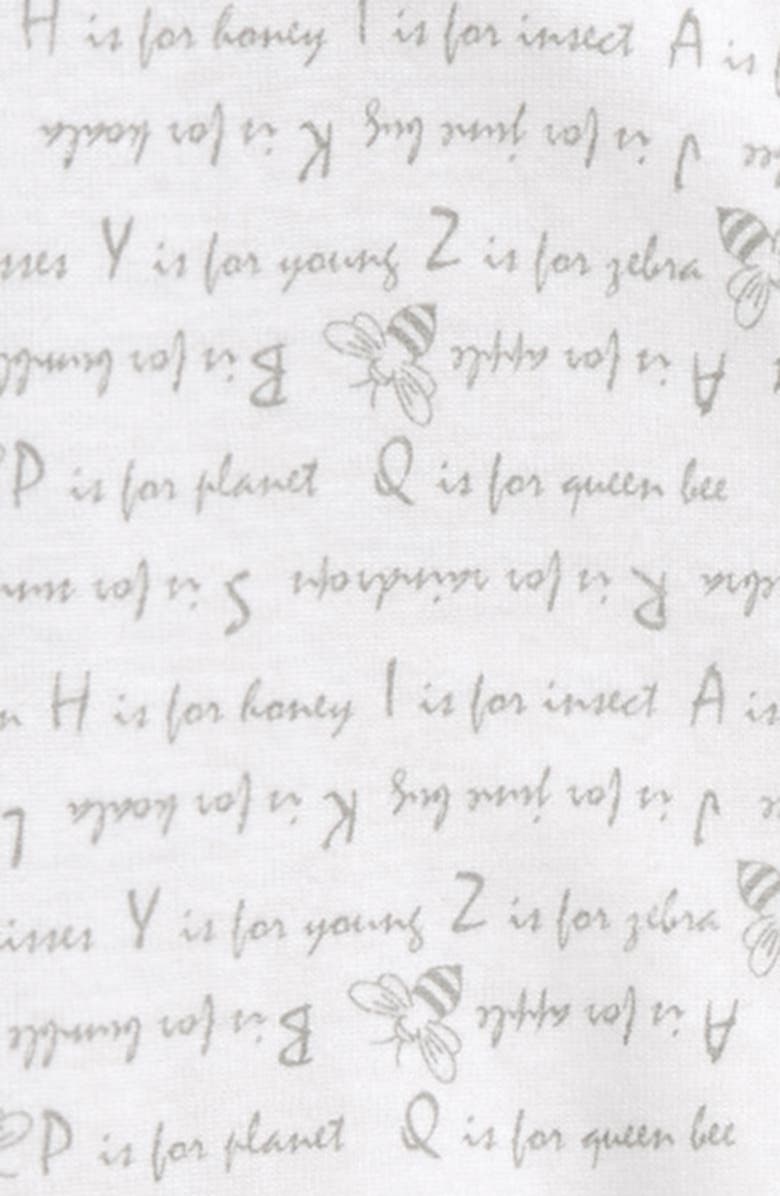 H is for honey I is for insect A is
J is for june bug K is for koala
Y is for young Z is for zebra
A is for apple B is for bumble
P is for planet Q is for queen bee
R is for raindrops S is for
H is for honey I is for insect A is
J is for june bug K is for koala L
Y is for young Z is for zebra
A is for apple B is for bumble
P is for planet Q is for queen bee